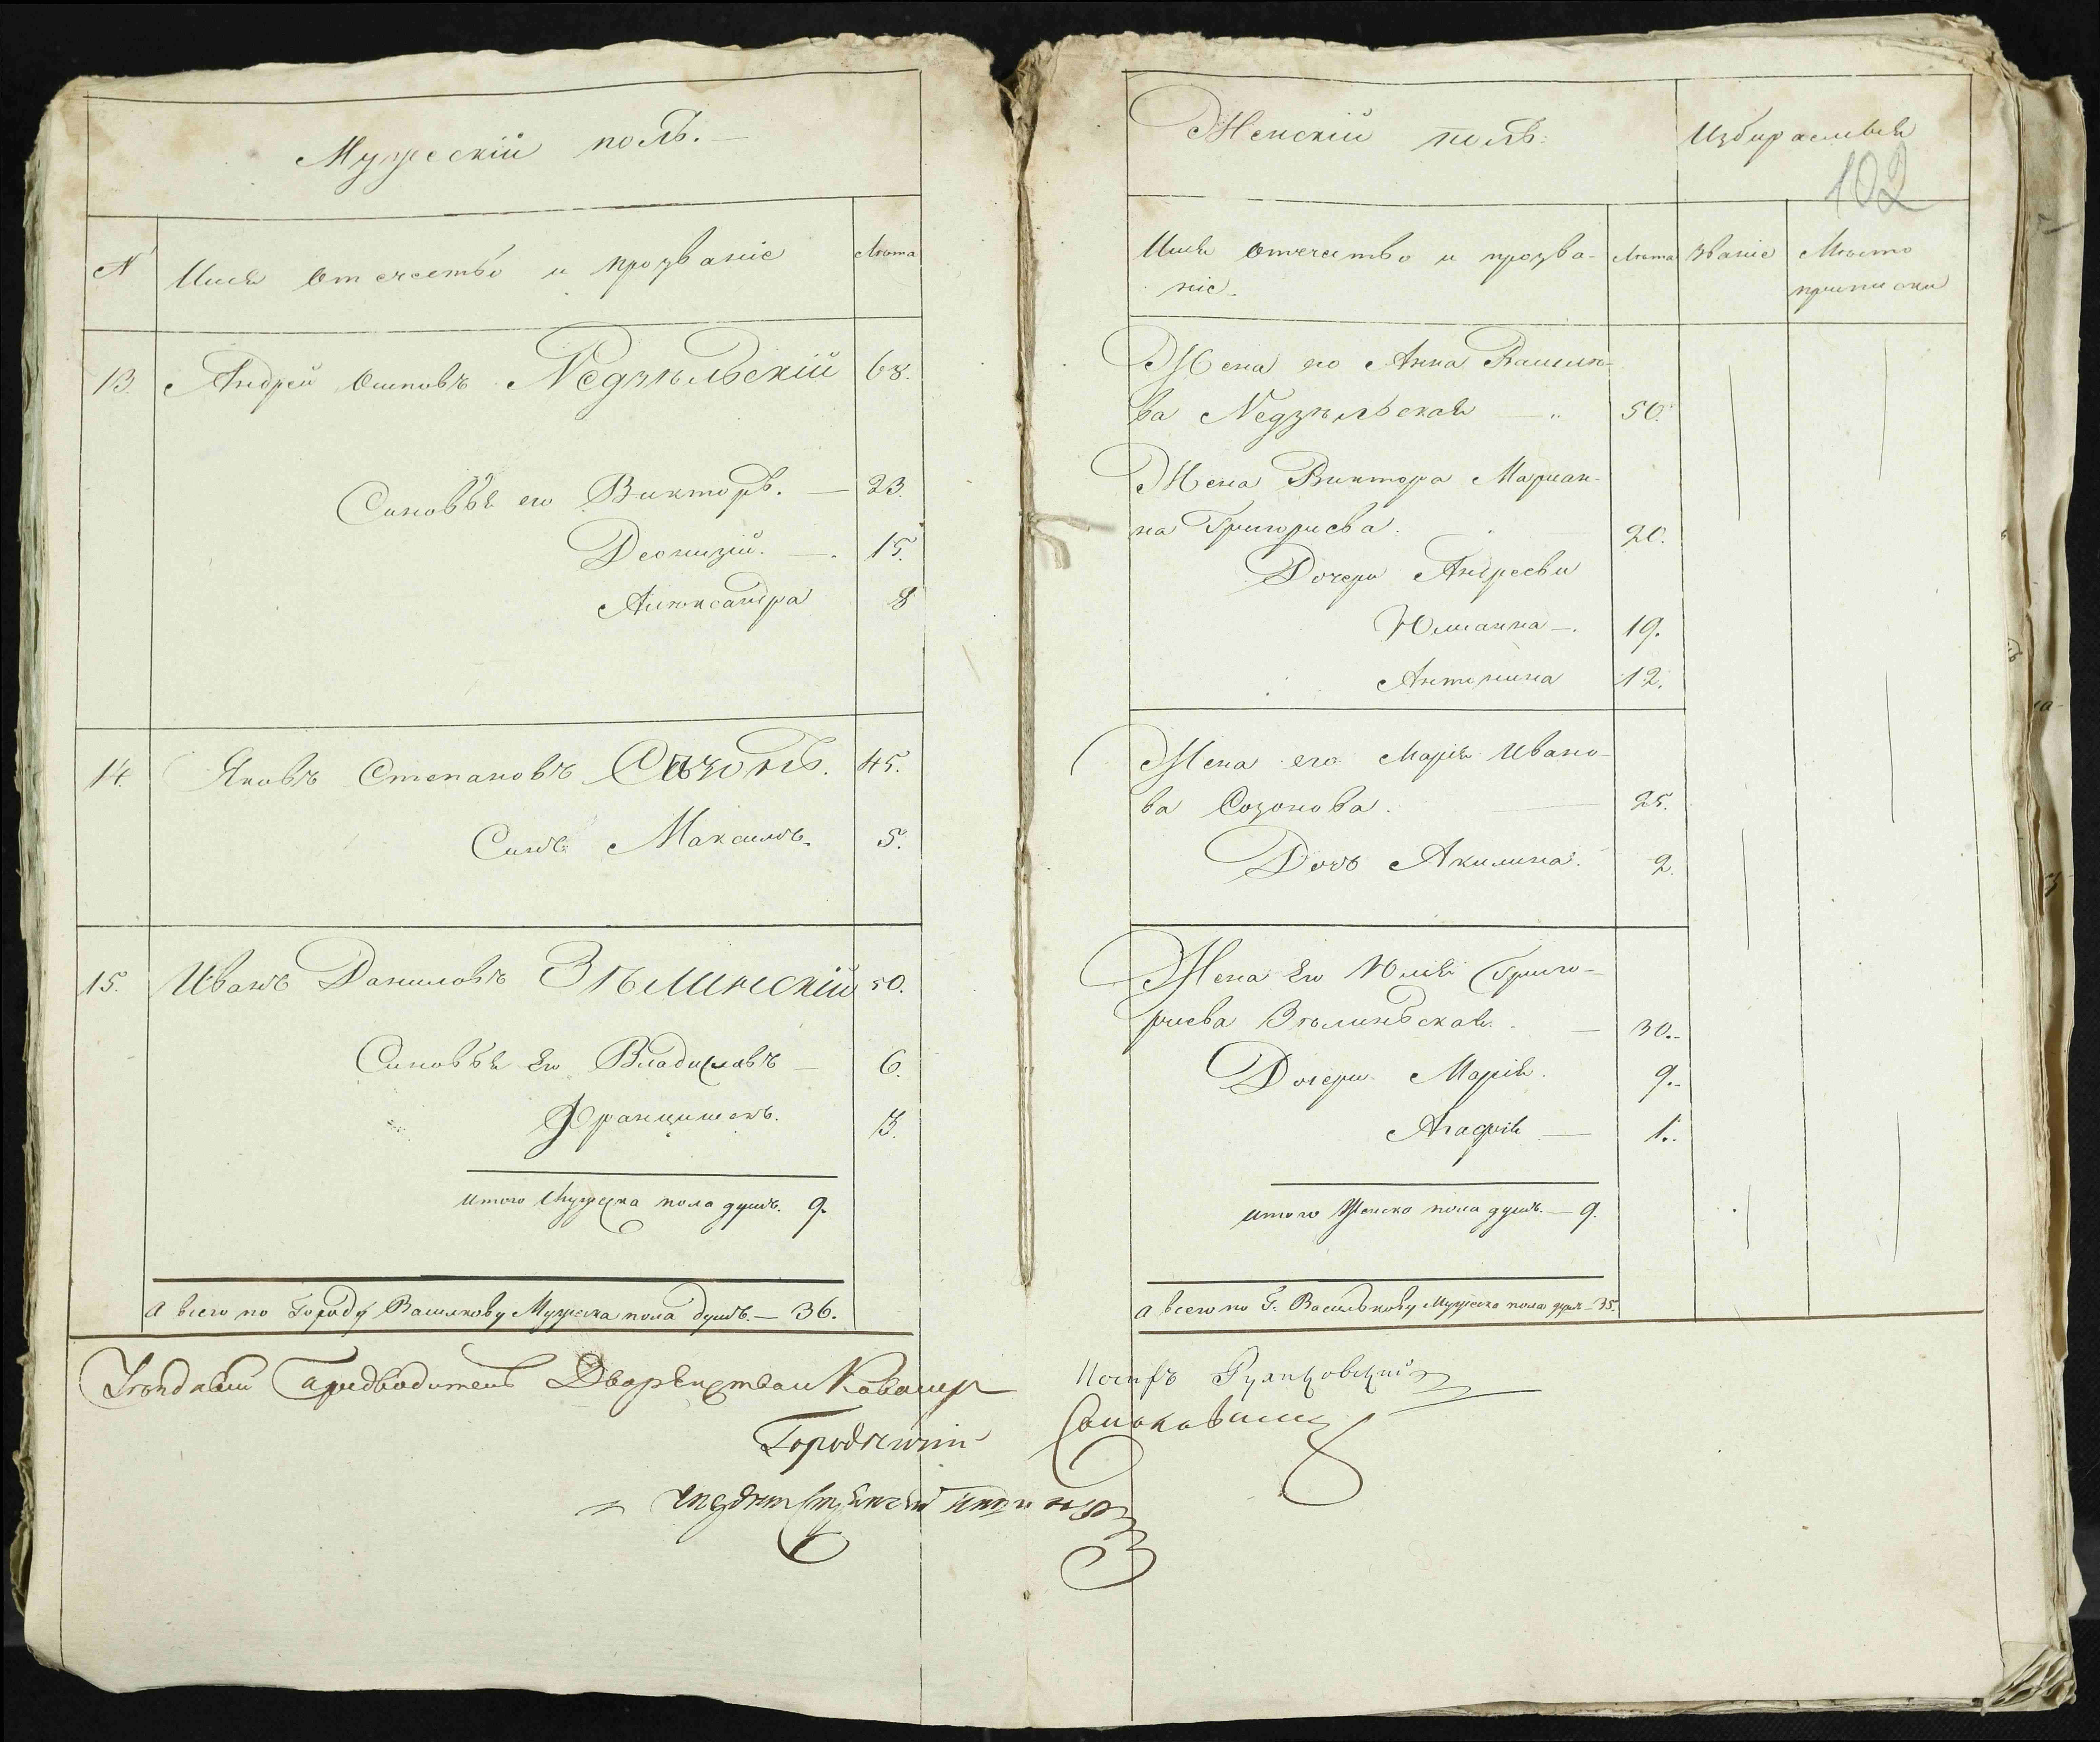 Мужескій полъ. —
N
Имя отчество и прозваніе
Лѣта
13.
Андрей Осиповъ Недзѣльскій
68.
Сыновья его Викторъ. —
23.
Деонизій. —.
15.
Александра
8
14.
Яковъ Степановъ Сазонъ.
45.
Сынъ Максимъ.
5.
15.
Иванъ Даниловъ Зѣлинскій
50.
Сыновья его Владиславъ —
6.
Францишекъ.
3.
Итого Мужеска пола душъ. 9.
А всего по Городу Василкову Мужеска пола душъ. — 36.
Женскій полъ:
Избираемыя
102
Имя Отчество и прозва-
ніе.
Лѣта
Званіе
Мѣсто
приписки
Жена его Анна Васильѣ-
ва Недзѣльская —
50.
Жена Виктора Мариан-
на Григориева.
20.
Дочери Андреевы
Юлианна —.
19.
Антонина
12.
Жена его Марія Ивано-
ва Созонова.
25.
Дочь Акилина.
2.
Жена Его Юлія Григо-
риева Зѣлиньская. —
30.
Дочери Марія.
9.
Агафія —
1.
Итого Женска пола душъ. — 9.
А всего по Г. Василькову Мужеска пола душъ — 35.
Уѣздный Предводитель Дворянства и Кавалеръ Иосифъ Руликовскій
Городничій